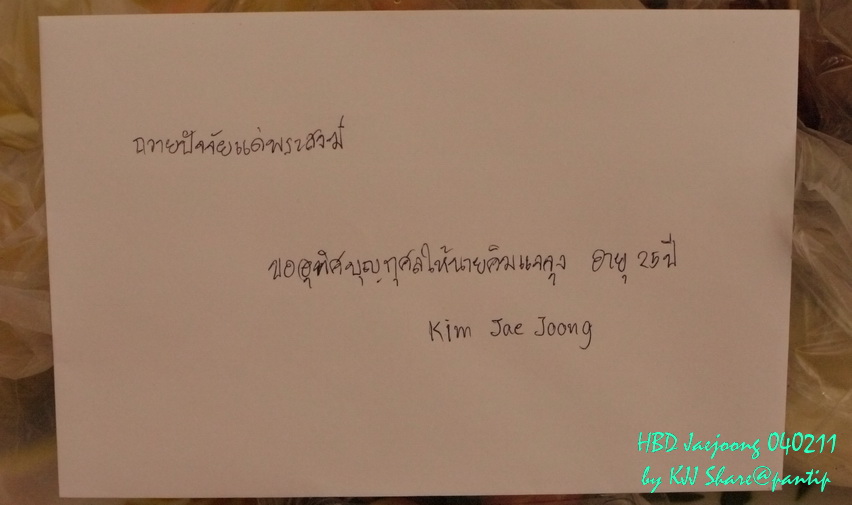 ถวายปัจจัยแด่พระสงฆ์
ขออุทิศบุญกุศลให้นายคิมแจจุง อายุ 25 ปี
Kim Jae Joong
HBD Jaejoong 040211
by KJJ Share@pantip